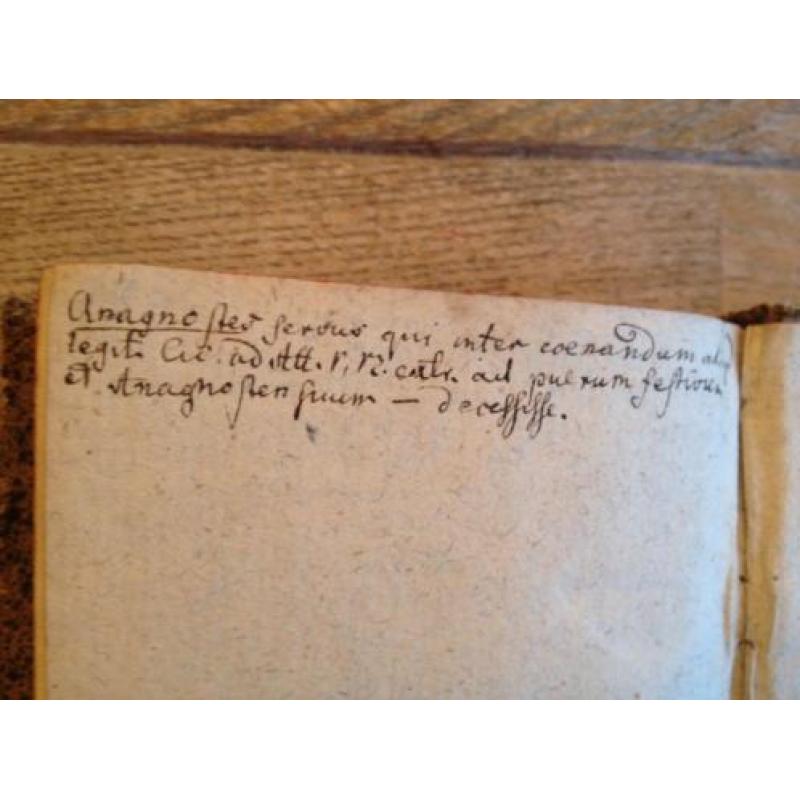 Anagnostes servus qui inter coenandum
legit. Cic. ad Att. extr. ad puerum festivum
et Anagnosten suum — decessisse.